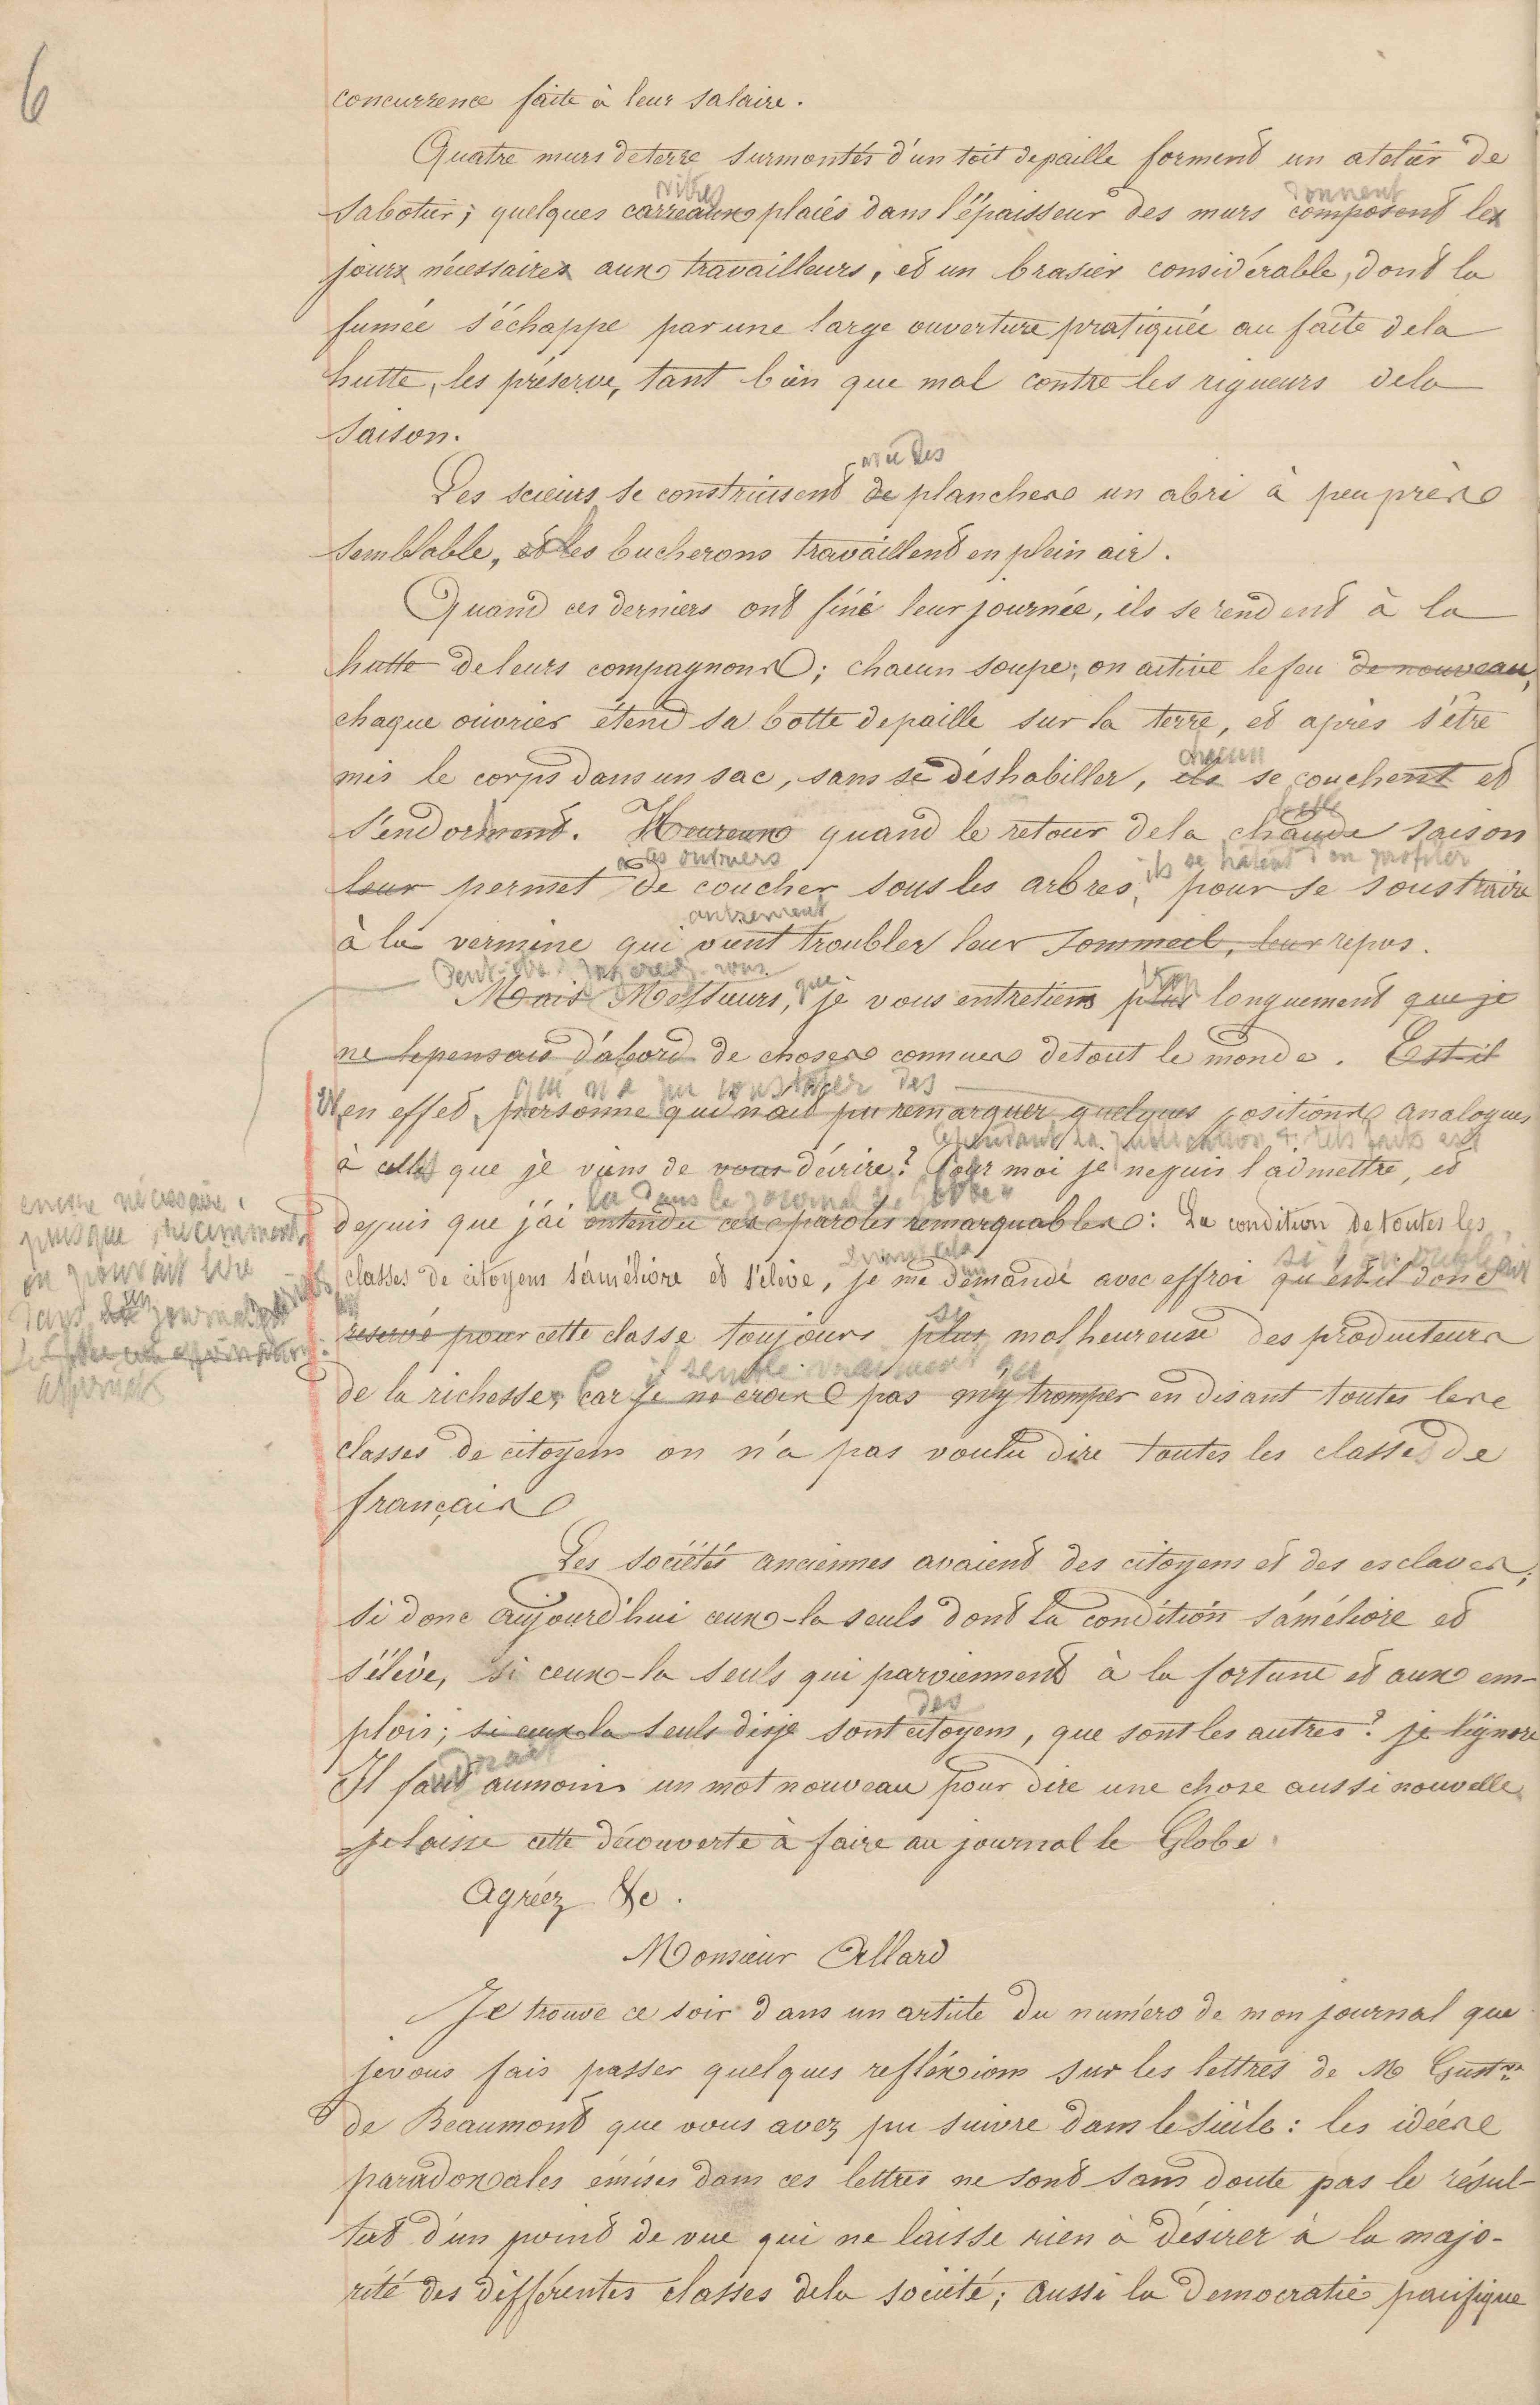 6
concurrence faite à leur salaire.
Quatre murs de terre surmontés d'un toit de paille forment un atelier de
vitres donnent
sabotier; quelques carreaux placés dans l'épaisseur des murs composent les
jours nécessaires aux travailleurs, et un brasier considérable, dont la
fumée s'échappe par une large ouverture pratiquée au faîte de la
hutte, les préserve, tant bien que mal contre les rigueurs de la
saison.
avec des
Les scieurs se construisent de planches un abri à peu près
semblable, et les bucherons travaillent en plein air.
Quand ces derniers ont fini leur journée, ils se rendent à la
hutte de leurs compagnons; chacun soupe; on active le feu de nouveau,
chaque ouvrier étend sa botte de paille sur la terre, et après s'être
chacun
mis le corps dans un sac, sans se déshabiller, ils se couchent et
belle
s'endorment. Heureux quand le retour de la chaude saison
à ces ouvriers ils se hâtent d'en profiter
leur permet de coucher sous les arbres, pour se soustraire
autrement
à la vermine qui vient troubler leur sommeil, leur repos.
Peut-être jugerez-vous
que trop
Mais Messieurs, je vous entretiens plus longuement que je
ne le pensais d'abord de choses connues de tout le monde. Est-il
qui n'a pu constater des
Et en effet, personne qui n'ait pu remarquer quelques positions analogues
Cependant la publication de tels faits est
à celles que je viens de vous décrire? Pour moi je ne puis l'admettre, et
encore nécessaire,
puisque récemment
on pouvait lire
dans un journal
lu dans le journal le Globe
depuis que j'ai entendu ces paroles remarquables: La condition de toutes les
classes de citoyens s'améliore et s'élève, je me demande avec effroi qu'est-il donc
si l'on oubliait
si
réservé pour cette classe toujours plus malheureuse des producteurs
il semble vraiment que
de la richesse, car je ne crois pas m'y tromper en disant toutes les
classes de citoyens on n'a pas voulu dire toutes les classes de
français
Les sociétés anciennes avaient des citoyens et des esclaves;
si donc aujourd'hui ceux-la seuls dont la condition s'améliore et
s'élève, si ceux-la seuls qui parviennent à la fortune et aux em-
des
plois; si ceux-la seuls dis-je sont citoyens, que sont les autres? je l'ignore
Il faut aumoins un mot nouveau pour dire une chose aussi nouvelle
je laisse cette découverte à faire au journal le Globe.
Agréez &c.
Monsieur Allard
Je trouve ce soir dans un article du numéro de mon journal que
je vous fais passer quelques refléxions sur les lettres de M Gustve
de Beaumont que vous avez pu suivre dans le siècle: les idées
paradoxales émises dans ces lettres ne sont sans doute pas le résul-
tat d'un point de vue qui ne laisse rien à désirer à la majo-
rité des différentes classes de la société; aussi la Democratie pacifique